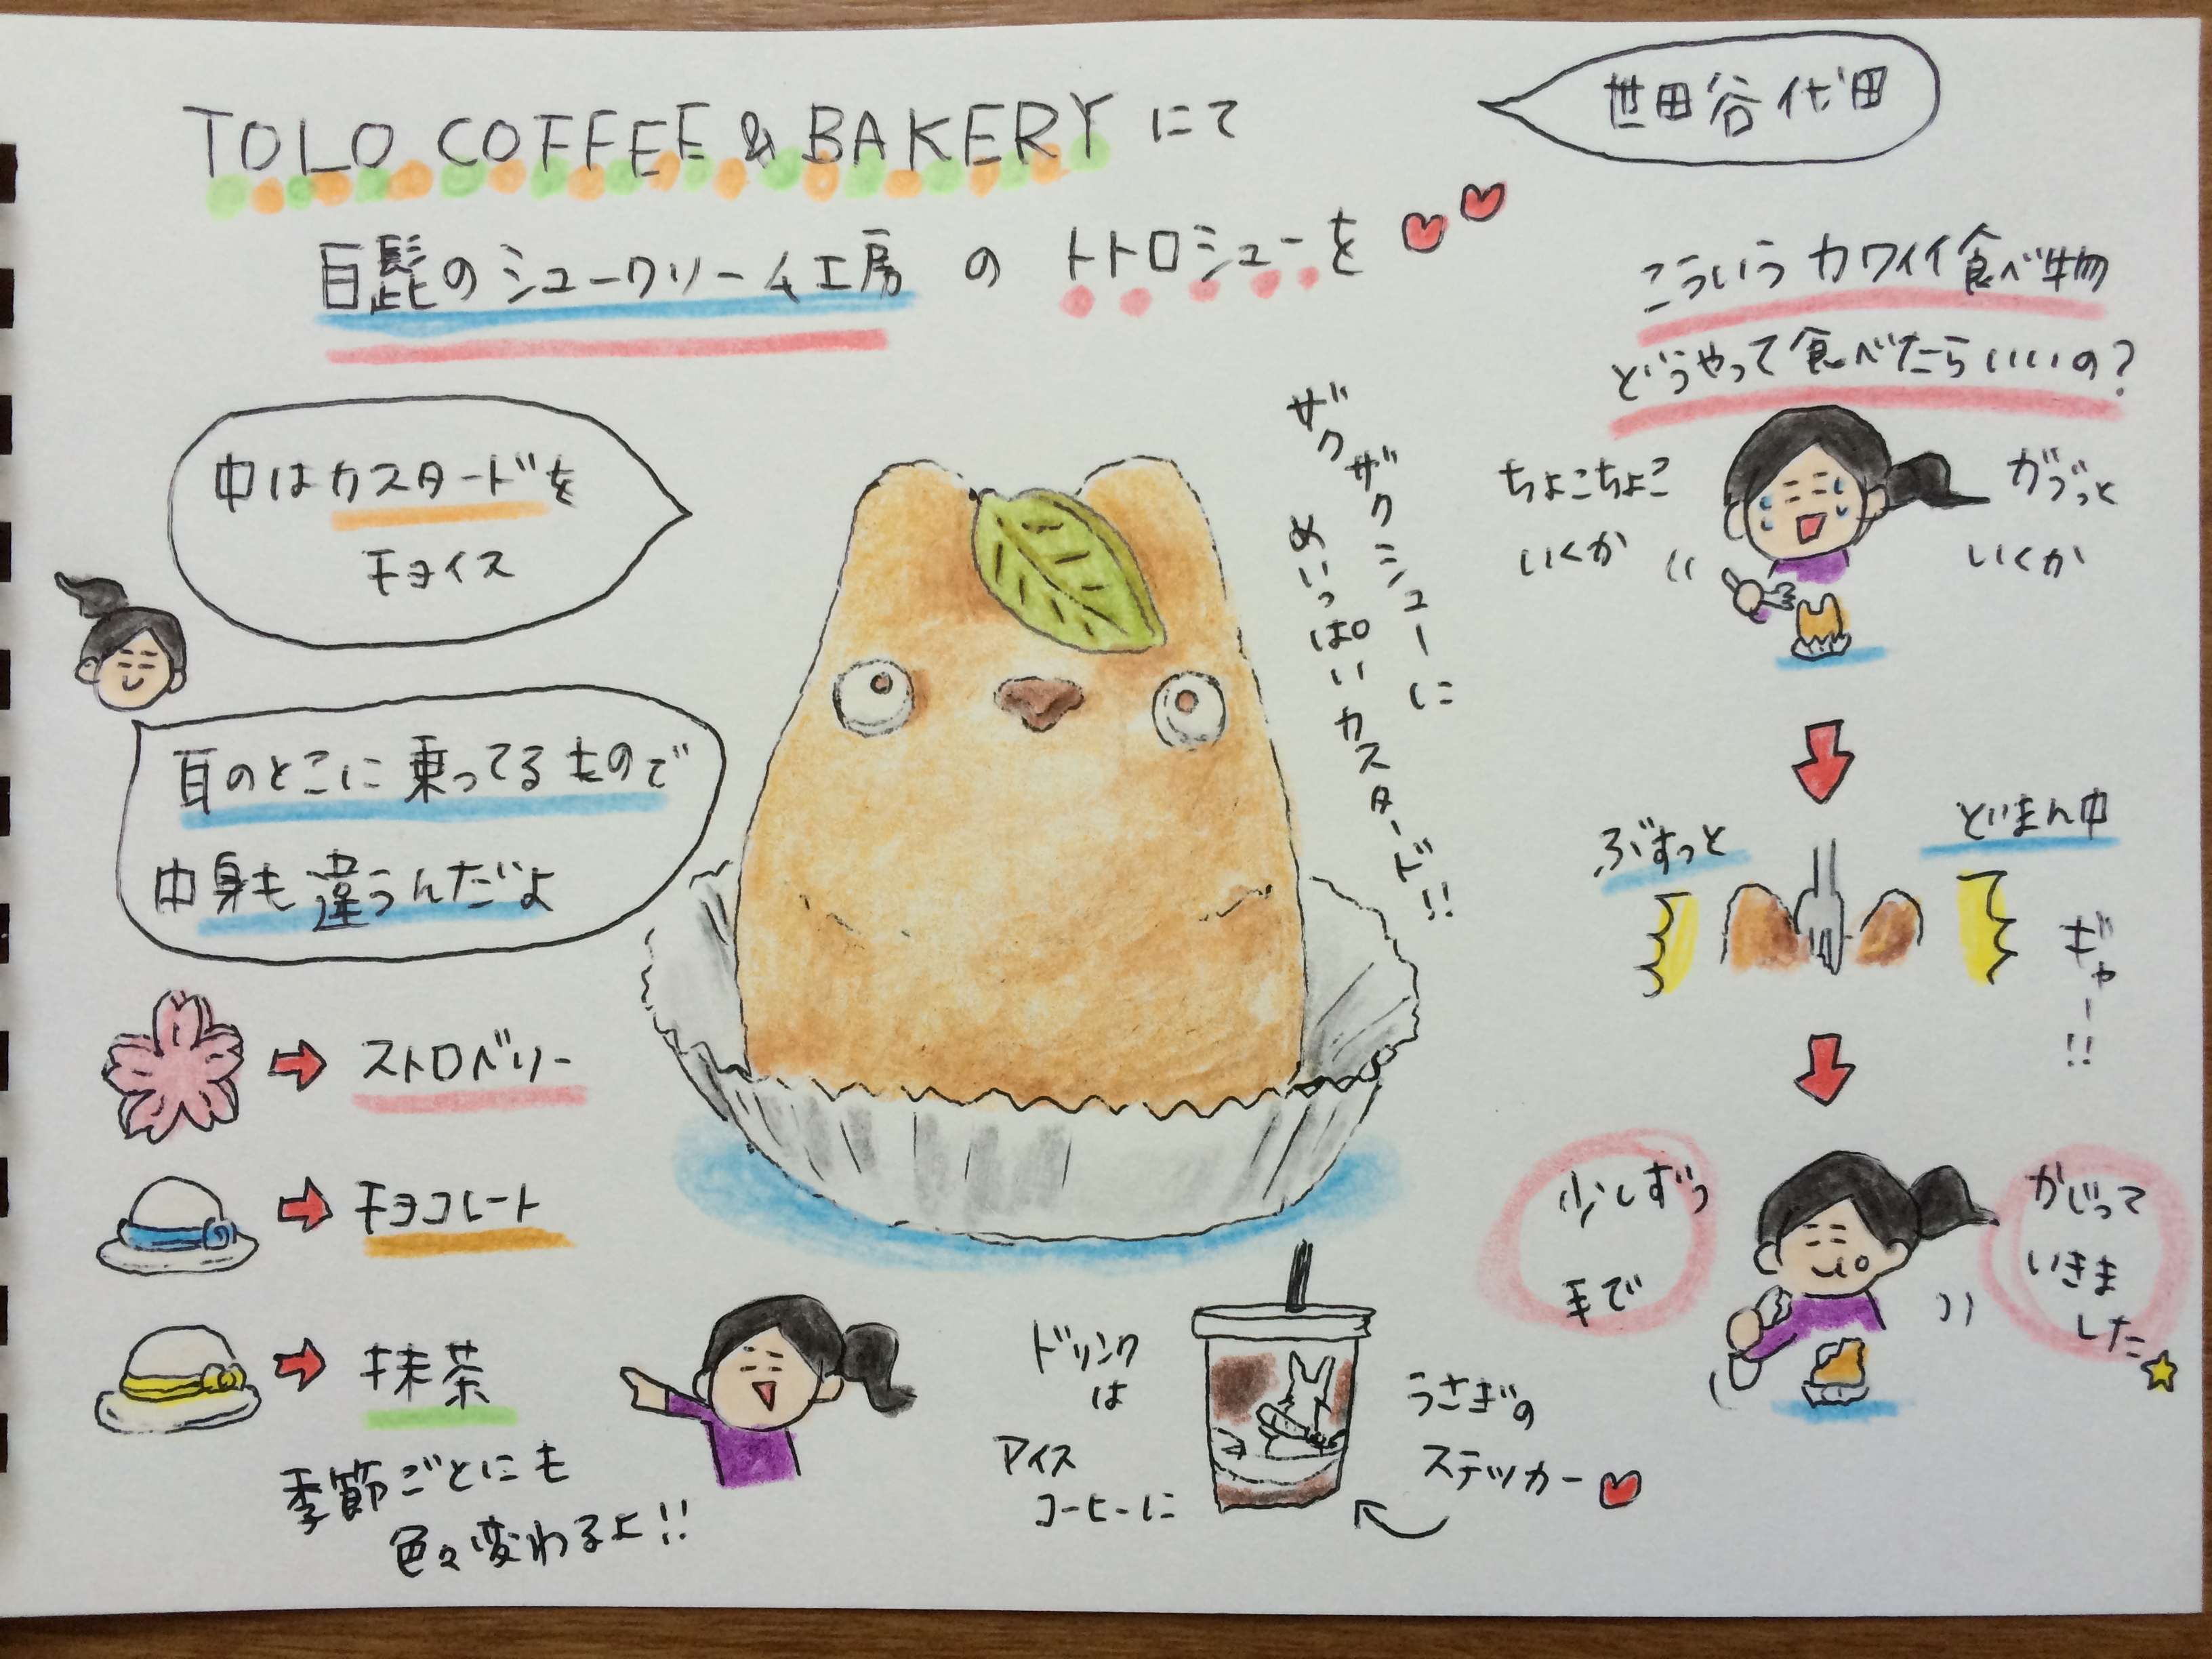 TOLO COFFEE & BAKERY にて
世田谷代田
白髭のシュークリーム工房 の トトロシューを
こういうカワイイ食べ物
どうやって食べたらいいの?
中はカスタードを
チョイス
ザクザクシューに
めいっぱいカスタード!!
ちょこちょこ
いくか
がぶっと
いくか
耳のとこに乗ってるもので
中身も違うんだよ
ぶすっと
どまん中
ギャー!!
ストロベリー
チョコレート
抹茶
季節ごとにも
色々変わるよ!!
ドリンク
は
アイス
コーヒーに
うさぎの
ステッカー
少しずつ
手で
かじって
いきま
した